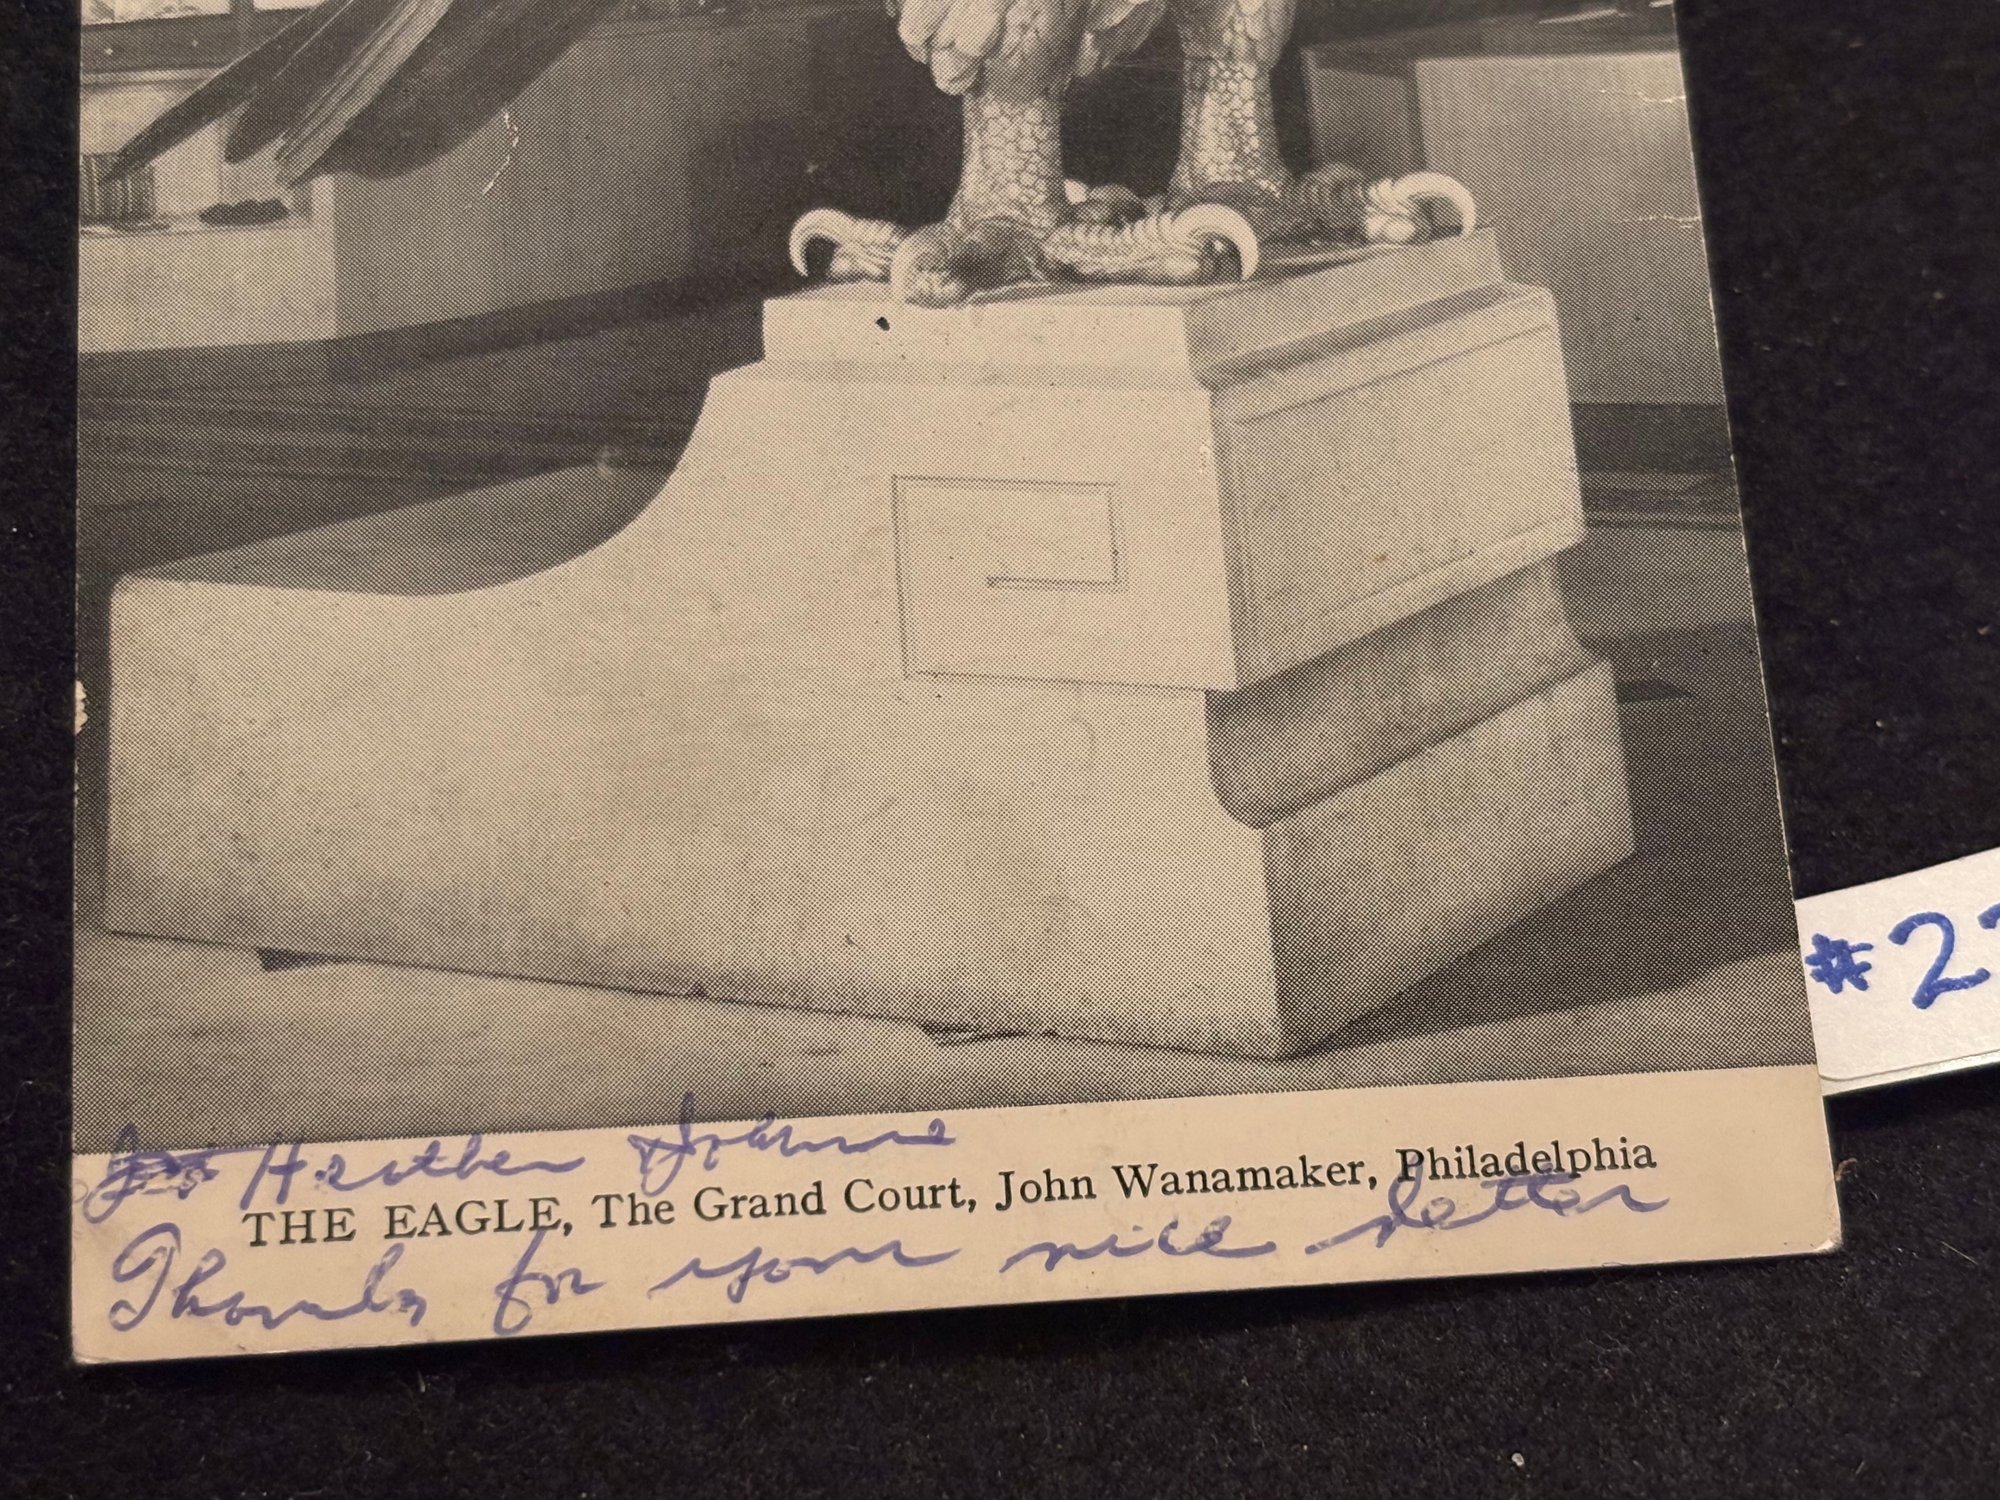 #2
Heather
THE EAGLE, The Grand Court, John Wanamaker, Philadelphia
Thanks for your nice letter